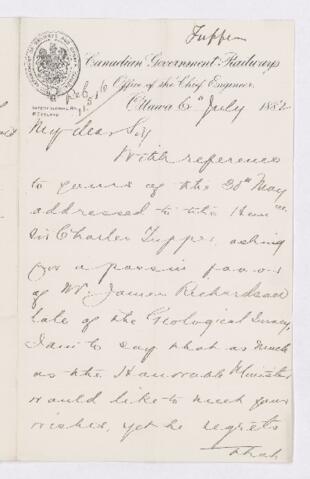 Tupper
Canadian Government Railways
Office of the Chief Engineer,
Ottawa 6th July 1882
My dear Sir
With reference
to yours of the 30th May
addressed to the Hon
Sir Charles Tupper, asking
for a pass in favor
of Mr James Richardson
late of the Geological Survey,
I am to say that as much
as the Honorable Minister
would like to meet your
wishes, yet he regrets
that